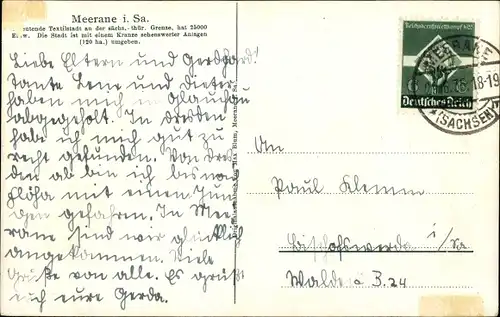 Meerane i. Sa.
Bedeutende Textilstadt an der sächs.-thür. Grenze, hat 25000
Einw. Die Stadt ist mit einem Kranze sehenswerter Anlagen
(120 ha.) umgeben.
Liebe Eltern und Gerdhard!
Tante Lene und Dieter
haben mich in Glauchau
abgeholt. In Dresden
habe ich mich gut zu
recht gefunden. Von Dres
den ab bin ich bis nach
Flöha mit einem Jun
gen gefahren. In Mee
rane sind wir glücklich
angekommen. Viele
Grüße von alle. Es grüßt
euch eure Gerda.
Max Blum, Meerane i. Sa.
Reichsberufswettkampf 1935
Deutsches Reich
MEERANE
18-19
(SACHSEN)
An
Paul Klemm
Bischofswerda i/Sa
Walde 3.24